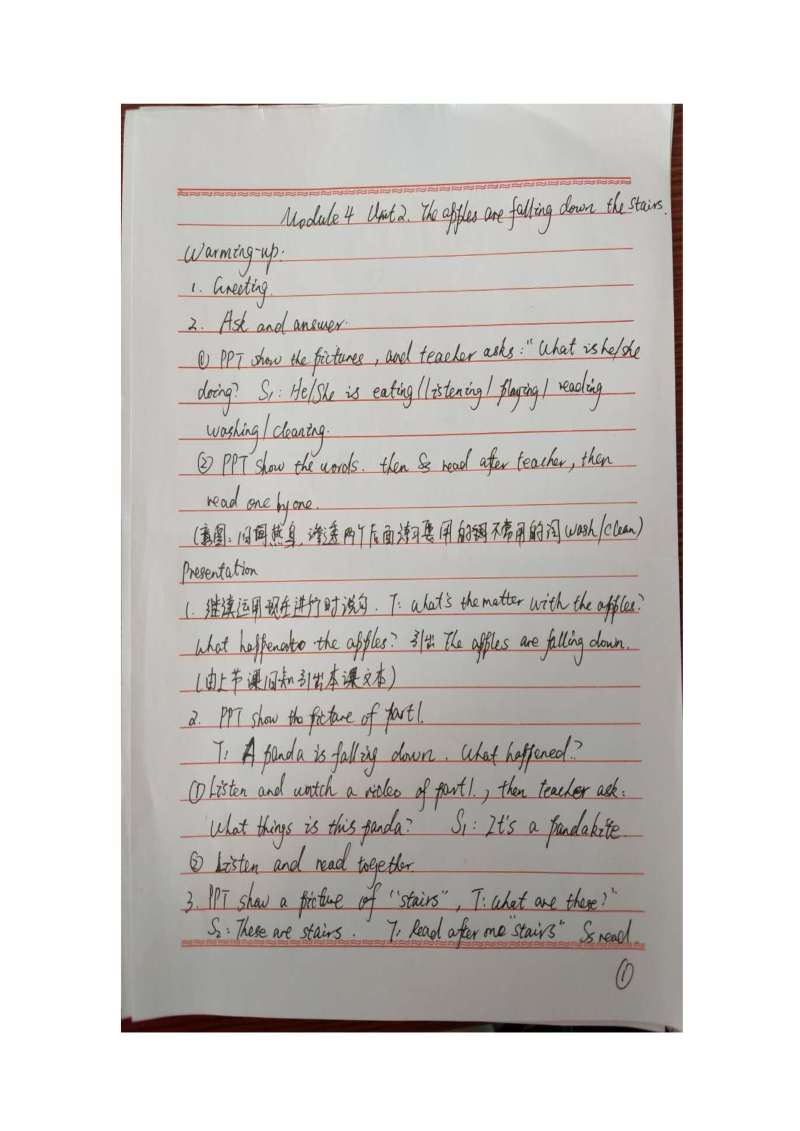 Module 4 Unit 2. The apples are falling down the stairs.
Warming-up:
1. Greeting.
2. Ask and answer.
① PPT show the pictures, and teacher asks: "What is he/she
doing? S1: He/She is eating/listening/playing/reading
washing/cleaning.
② PPT show the words. then Ss read after teacher, then
read one by one.
(意图:旧词热身,渗透两个后面练习要用的不常用的词 wash/clean)
Presentation
1. 继续运用现在进行时说句. T: what's the matter with the apples?
What happened to the apples? 引出 The apples are falling down.
(由上节课旧知引出本课文本)
2. PPT show the picture of part1.
T: A panda is falling down. What happened?
① Listen and watch a video of part1., then teacher ask:
What things is this panda? S1: It's a pandakite.
② Listen and read together.
3. PPT show a picture of "stairs", T: What are these?"
S2: These are stairs. T: Read after me "stairs" Ss read.
①